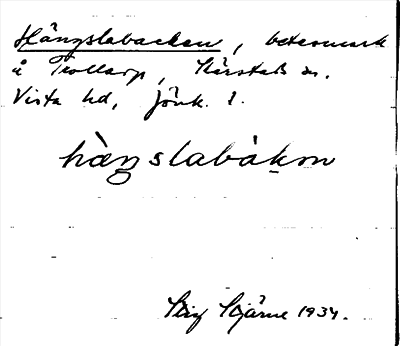 Hängslabacken, betesmark
å Trollarp, Skärstads sn.
Vista hd, Jönk. l.
hàŋslabákɷn
Stig Stjärne 1934.